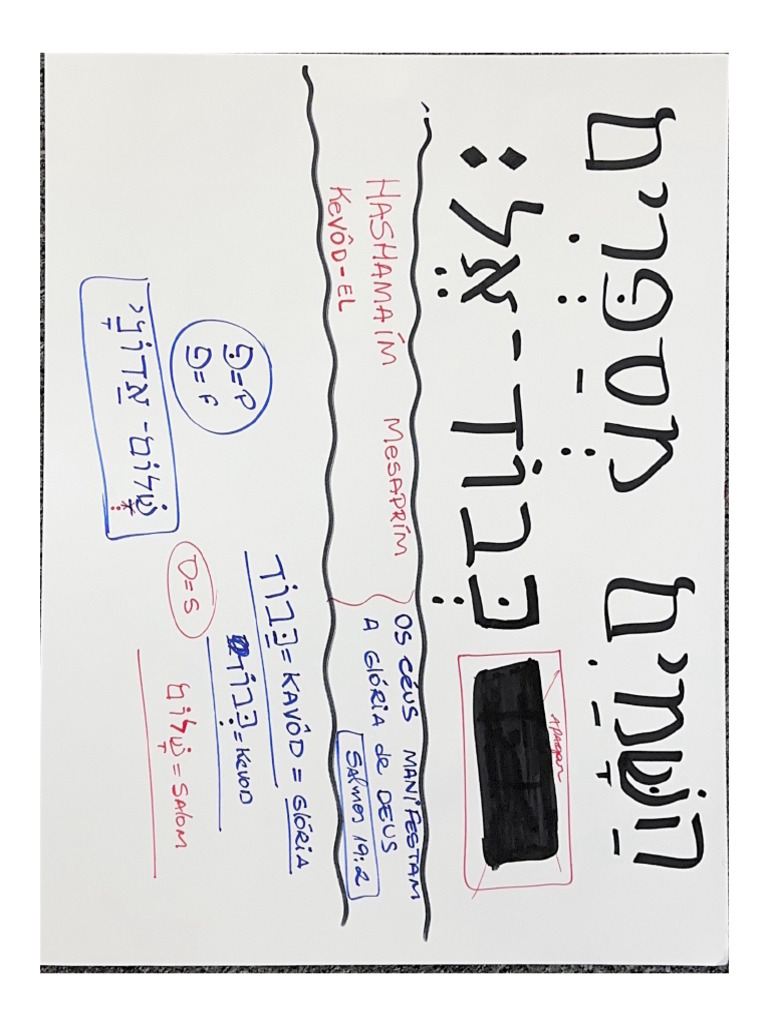 הַשָּׁמַיִם מְסַפְּרִים
כְּבוֹד-אֵל:
APAGAR
HASHAMAÍM MESAPRÍM
KEVÔD-EL
OS CÉUS MANIFESTAM
A GLÓRIA de DEUS
Salmos 19:2
כָּבוֹד = KAVÔD = GLÓRIA
פּ=P
פ=F
כְּבוֹד = KEVOD
שָׁלוֹם - אֲדוֹנָי
שָׁלוֹם = SALOM